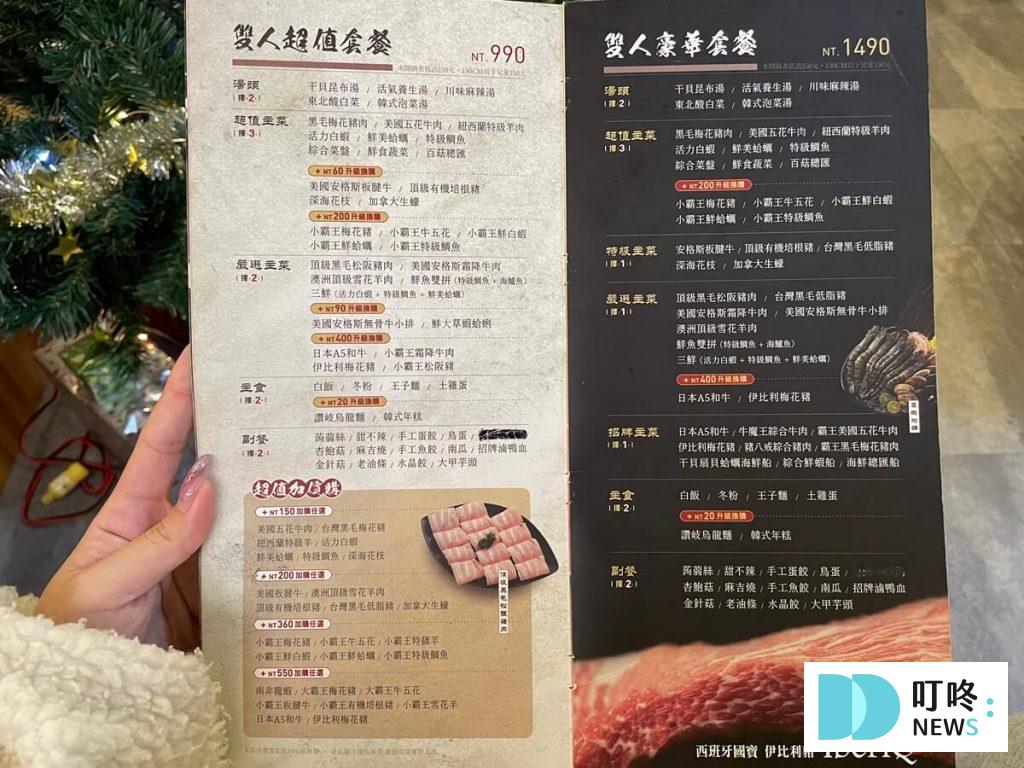 雙人超值套餐
NT. 990
湯頭
(擇·2·)
干貝昆布湯 / 活氣養生湯 / 川味麻辣湯
東北酸白菜 / 韓式泡菜湯
超值主菜
(擇·3·)
黑毛梅花豬肉 / 美國五花牛肉 / 紐西蘭特級羊肉
活力白蝦 / 鮮美蛤蠣 / 特級鯛魚
綜合菜盤 / 鮮食蔬菜 / 百菇總匯
+ NT 60 升級換購
美國安格斯板腱牛 / 頂級有機培根豬
深海花枝 / 加拿大生蠔
+ NT 200 升級換購
小霸王梅花豬 / 小霸王牛五花 / 小霸王鮮白蝦
小霸王鮮蛤蠣 / 小霸王特級鯛魚
嚴選主菜
(擇·2·)
頂級黑毛松阪豬肉 / 美國安格斯霜降牛肉
澳洲頂級雪花羊肉 / 鮮魚雙拼 (特級鯛魚 + 海鱸魚)
三鮮 (活力白蝦 + 特級鯛魚 + 鮮美蛤蠣)
+ NT 90 升級換購
美國安格斯無骨牛小排 / 鮮大草蝦蛤蜊
+ NT 400 升級換購
日本A5和牛 / 小霸王霜降牛肉
伊比利梅花豬 / 小霸王松阪豬
主食
(擇·2·)
白飯 / 冬粉 / 王子麵 / 土雞蛋
+ NT 20 升級換購
讚岐烏龍麵 / 韓式年糕
副餐
(擇·2·)
蒟蒻絲 / 甜不辣 / 手工蛋餃 / 鳥蛋 /
杏鮑菇 / 麻吉燒 / 手工魚餃 / 南瓜 / 招牌滷鴨血
金針菇 / 老油條 / 水晶餃 / 大甲芋頭
超值加價購
+ NT 150 加購任選
美國五花牛肉 / 台灣黑毛梅花豬
紐西蘭特級羊 / 活力白蝦
鮮美蛤蠣 / 特級鯛魚 / 深海花枝
+ NT 200 加購任選
美國板腱牛 / 澳洲頂級雪花羊肉
頂級有機培根豬 / 台灣黑毛低脂豬 / 加拿大生蠔
+ NT 360 加購任選
小霸王梅花豬 / 小霸王牛五花 / 小霸王特級羊
小霸王鮮白蝦 / 小霸王鮮蛤蠣 / 小霸王特級鯛魚
+ NT 550 加購任選
南非龍蝦 / 大霸王梅花豬 / 大霸王牛五花
小霸王板腱牛 / 小霸王有機培根豬 / 小霸王雪花羊
日本A5和牛 / 伊比利梅花豬
頂級黑毛松阪豬肉
雙人豪華套餐
NT. 1490
湯頭
(擇·2·)
干貝昆布湯 / 活氣養生湯 / 川味麻辣湯
東北酸白菜 / 韓式泡菜湯
超值主菜
(擇·3·)
黑毛梅花豬肉 / 美國五花牛肉 / 紐西蘭特級羊肉
活力白蝦 / 鮮美蛤蠣 / 特級鯛魚
綜合菜盤 / 鮮食蔬菜 / 百菇總匯
+ NT 200 升級換購
小霸王梅花豬 / 小霸王牛五花 / 小霸王鮮白蝦
小霸王鮮蛤蠣 / 小霸王特級鯛魚
特級主菜
(擇·1·)
安格斯板腱牛 / 頂級有機培根豬 / 台灣黑毛低脂豬
深海花枝 / 加拿大生蠔
嚴選主菜
(擇·1·)
頂級黑毛松阪豬肉 / 台灣黑毛低脂豬
美國安格斯霜降牛肉 / 美國安格斯無骨牛小排
澳洲頂級雪花羊肉
鮮魚雙拼 (特級鯛魚 + 海鱸魚)
三鮮 (活力白蝦 + 特級鯛魚 + 鮮美蛤蠣)
+ NT 400 升級換購
日本A5和牛 / 伊比利梅花豬
招牌主菜
(擇·1·)
日本A5和牛 / 牛魔王綜合牛肉 / 霸王美國五花牛肉
伊比利梅花豬 / 豬八戒綜合豬肉 / 霸王黑毛梅花豬肉
干貝扇貝蛤蠣海鮮船 / 綜合鮮蝦船 / 海鮮總匯船
主食
(擇·2·)
白飯 / 冬粉 / 王子麵 / 土雞蛋
+ NT 20 升級換購
讚岐烏龍麵 / 韓式年糕
副餐
(擇·2·)
蒟蒻絲 / 甜不辣 / 手工蛋餃 / 鳥蛋 /
杏鮑菇 / 麻吉燒 / 手工魚餃 / 南瓜 / 招牌滷鴨血
金針菇 / 老油條 / 水晶餃 / 大甲芋頭
西班牙國寶 伊比利豬
叮咚:
NEWS